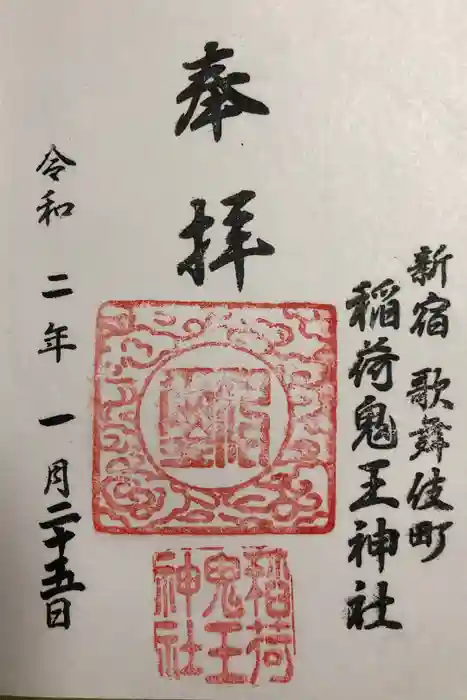 新宿 歌舞伎町
稲荷鬼王神社
奉拝
稲荷
鬼王
神社
令和 二年 一月二十五日